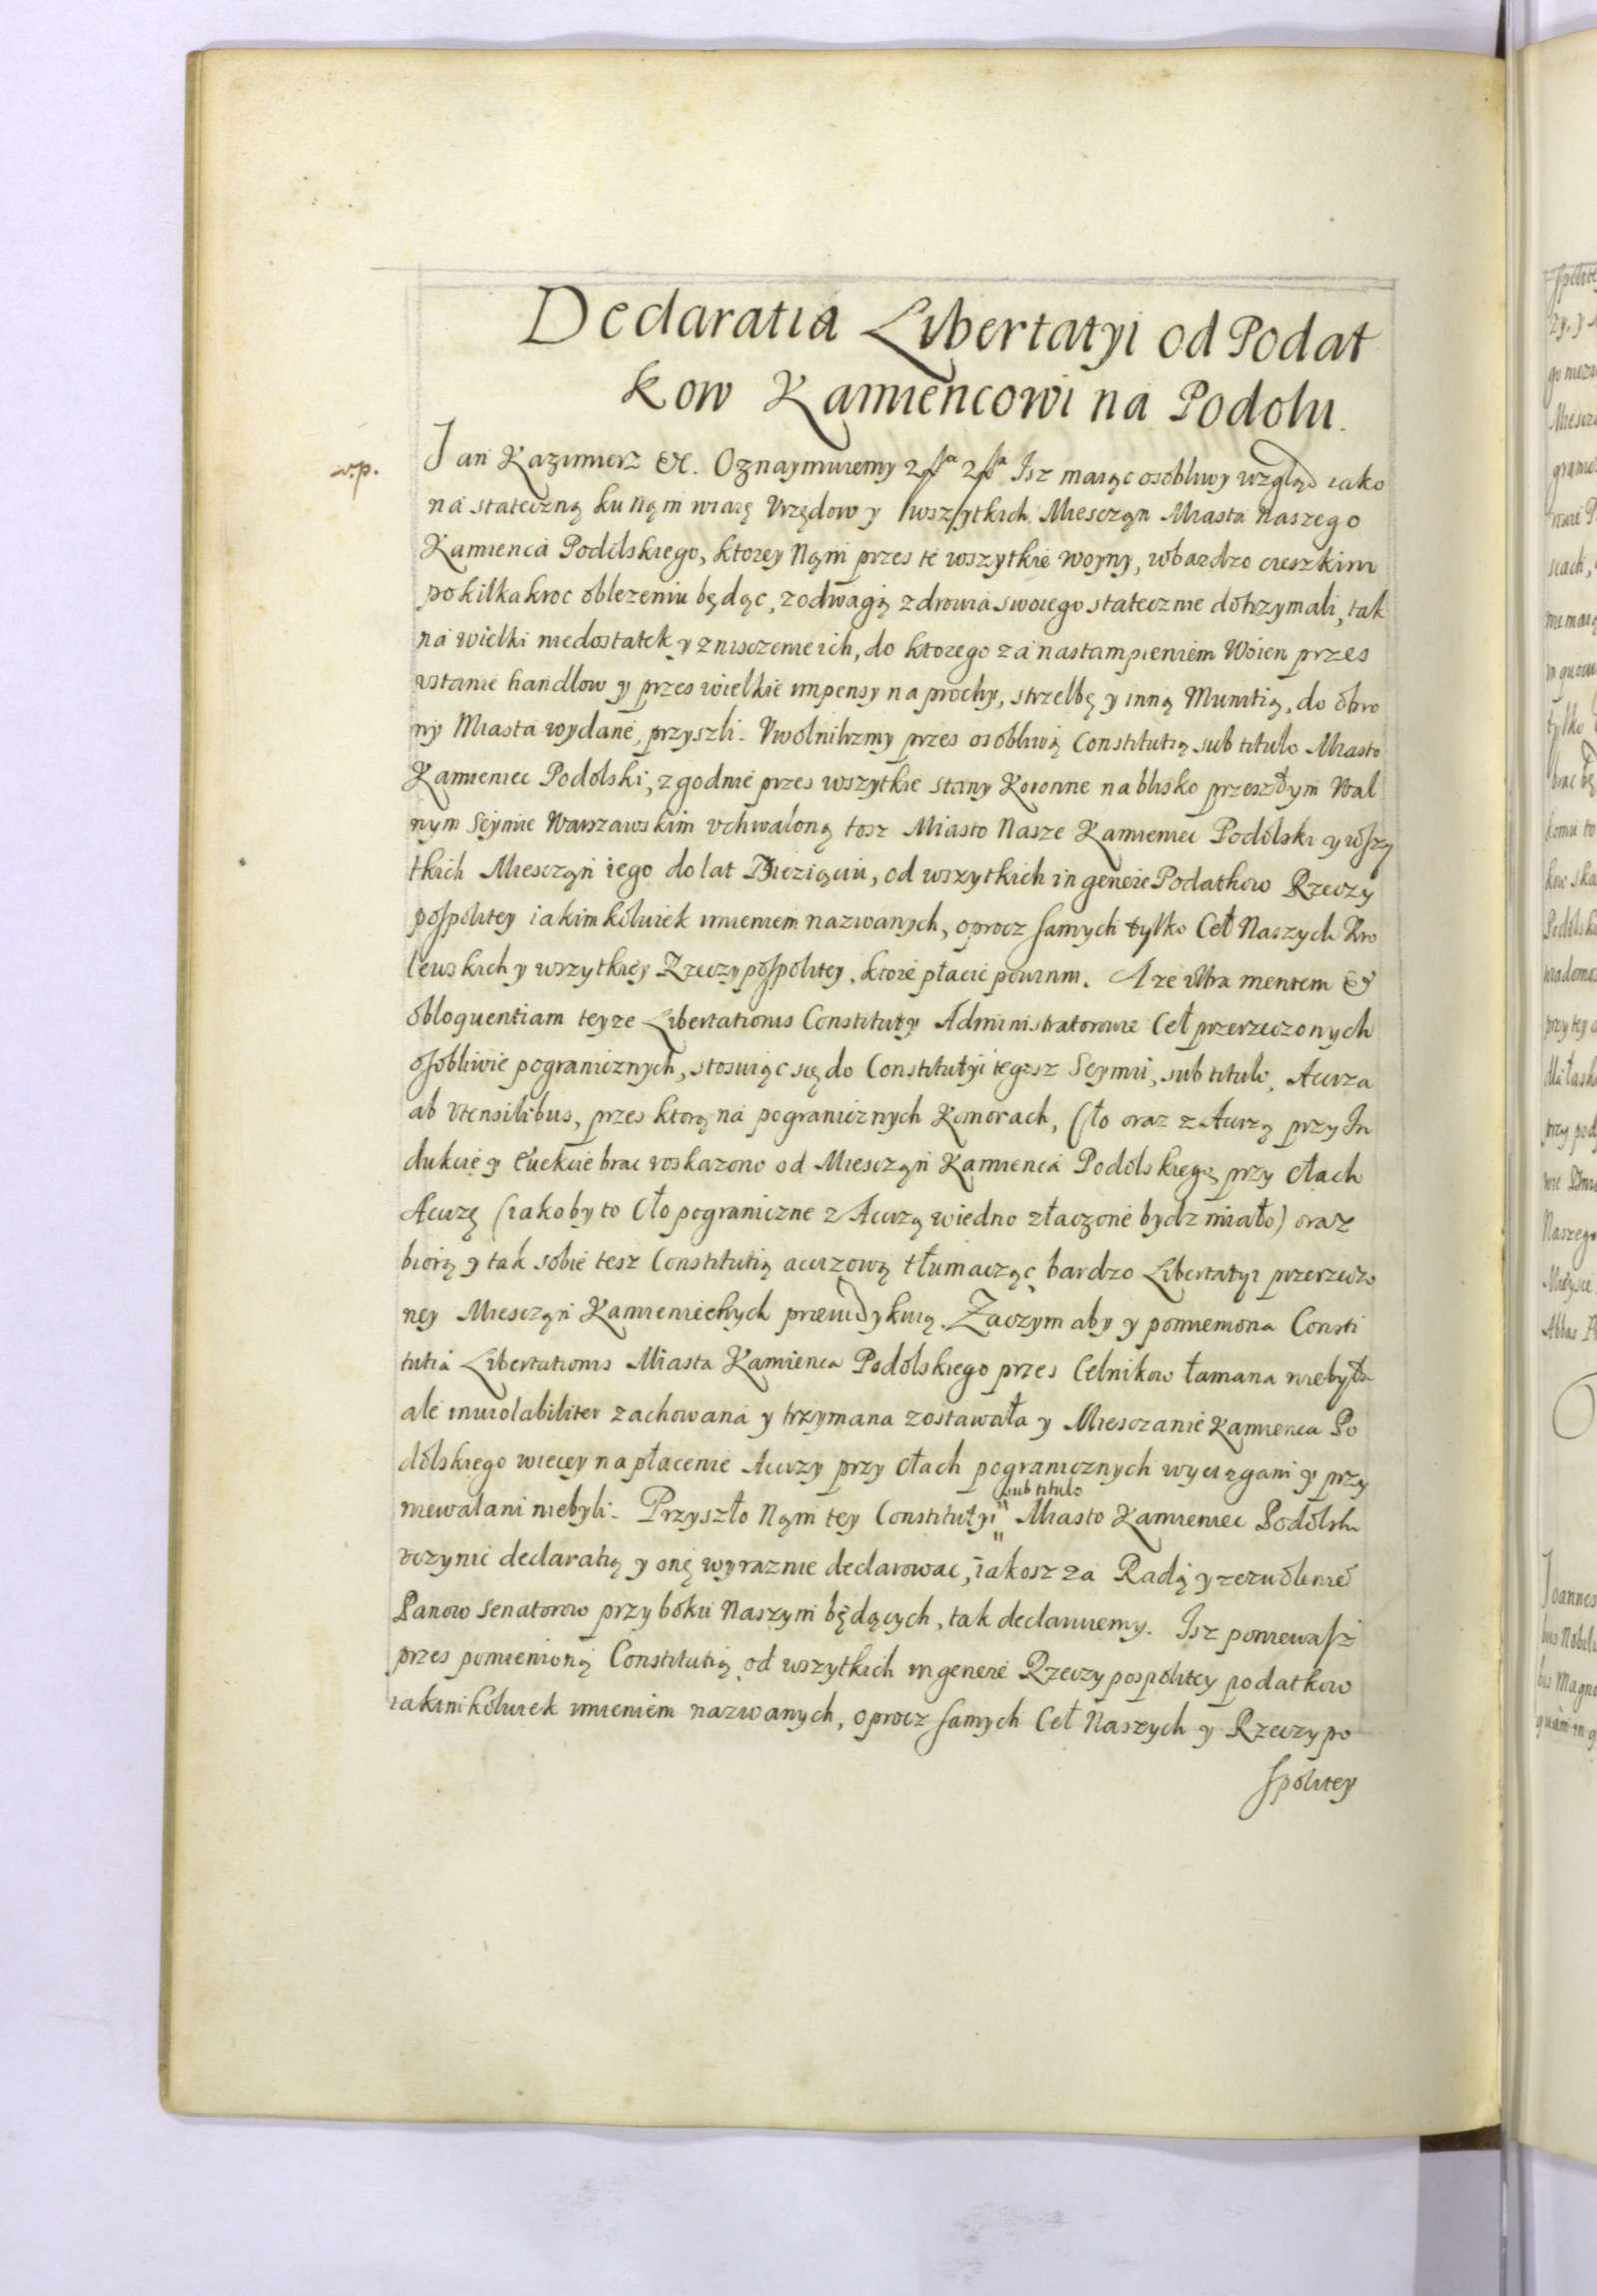 Declaratia Libertatyi od Podat
kow Kamiencowi na Podolu.
v.p.
Jan Kazimierz &c. Oznaymuiemy Isz maiąc osobliwy wzgląd iako
na stateczną ku Nąm wiarę Vrzędow y wszytkich Miesczan Miasta Naszego
Kamienca Podolskiego, ktorey Nąm przes te wszytkie woyny, wbardzo cieszkim
pokilkakroc oblezeniu będąc, zodwagą zdrowia swoiego statecznie dotrzymali, tak
na wielki niedostatek y zniszczenie ich, do ktorego za nastampieniem Woien przes
ustanie handlow y przes wielkie impensy na prochy, strzelbę y inną Munitią, do obro
ny Miasta wydane, przyszli. Vwolnilizmy przes osobliwą Constitutią sub titulo Miasto
Kamieniec Podolski, zgodnie przes wszytkie stany Koronne na blisko przeszłym Wal
nym Seymie Warszawskim vchwaloną tosz Miasto Nasze Kamieniec Podolski y wszy
tkich Miesczan iego do lat Dziesięciu, od wszytkich in genere Podatkow Rzeczy
pospolitey iakimkolwiek imieniem nazwanych, oprocz samych tylko Ceł Naszych Kro
lewskich y wszytkiey Rzeczypospolitey, ktore płacic powinni. A ze ultra mentem &
obloquentiam teyze Libertationis Constituty Administratorowie Ceł przerzeczonych
osobliwie pogranicznych, stosuiąc się do Constitutyi tegosz Seymu, sub titulo, Acirza
ab Vtensilibus, przes ktorą na pogranicznych Komorach, Cło oraz z Acizą przy In
dukcie y Euekcie brac roskazono od Miesczan Kamienca Podolskiego przy Cłach
Acizę (iakoby to Cło pograniczne z Acizą wiedno złączone bydz miało) oraz
biorą y tak sobie tesz Constitutią acizową tłumacząc bardzo Libertatyi przerzeczo
ney Miesczan Kamienieckych praeiudykuią. Zaczym aby y pomieniona Consti
tutia Libertationis Miasta Kamienca Podolskiego przes Celnikow łamana niebyła
ale inuiolabiliter zachowana y trzymana zostawała y Miesczanie Kamienca Po
dolskiego wiecey na płacenie Acizy przy Cłach pogranicznych wyciągani y przy
niewalani niebyli. Przyszło Nąm tey Constitutyi sub titulo Miasto Kamieniec Podolski
vczynic declaratią y onę wyraznie declarowac, iakosz za Radą y zezwolenie
Panow Senatorow przy boku Naszym będących, tak declaruiemy. Isz poniewasz
przes pomienioną Constitutią od wszytkich in genere Rzeczy pospolitey podatkow
iakimkolwiek imieniem nazwanych, oprocz samych Ceł Naszych y Rzeczypo
spolitey